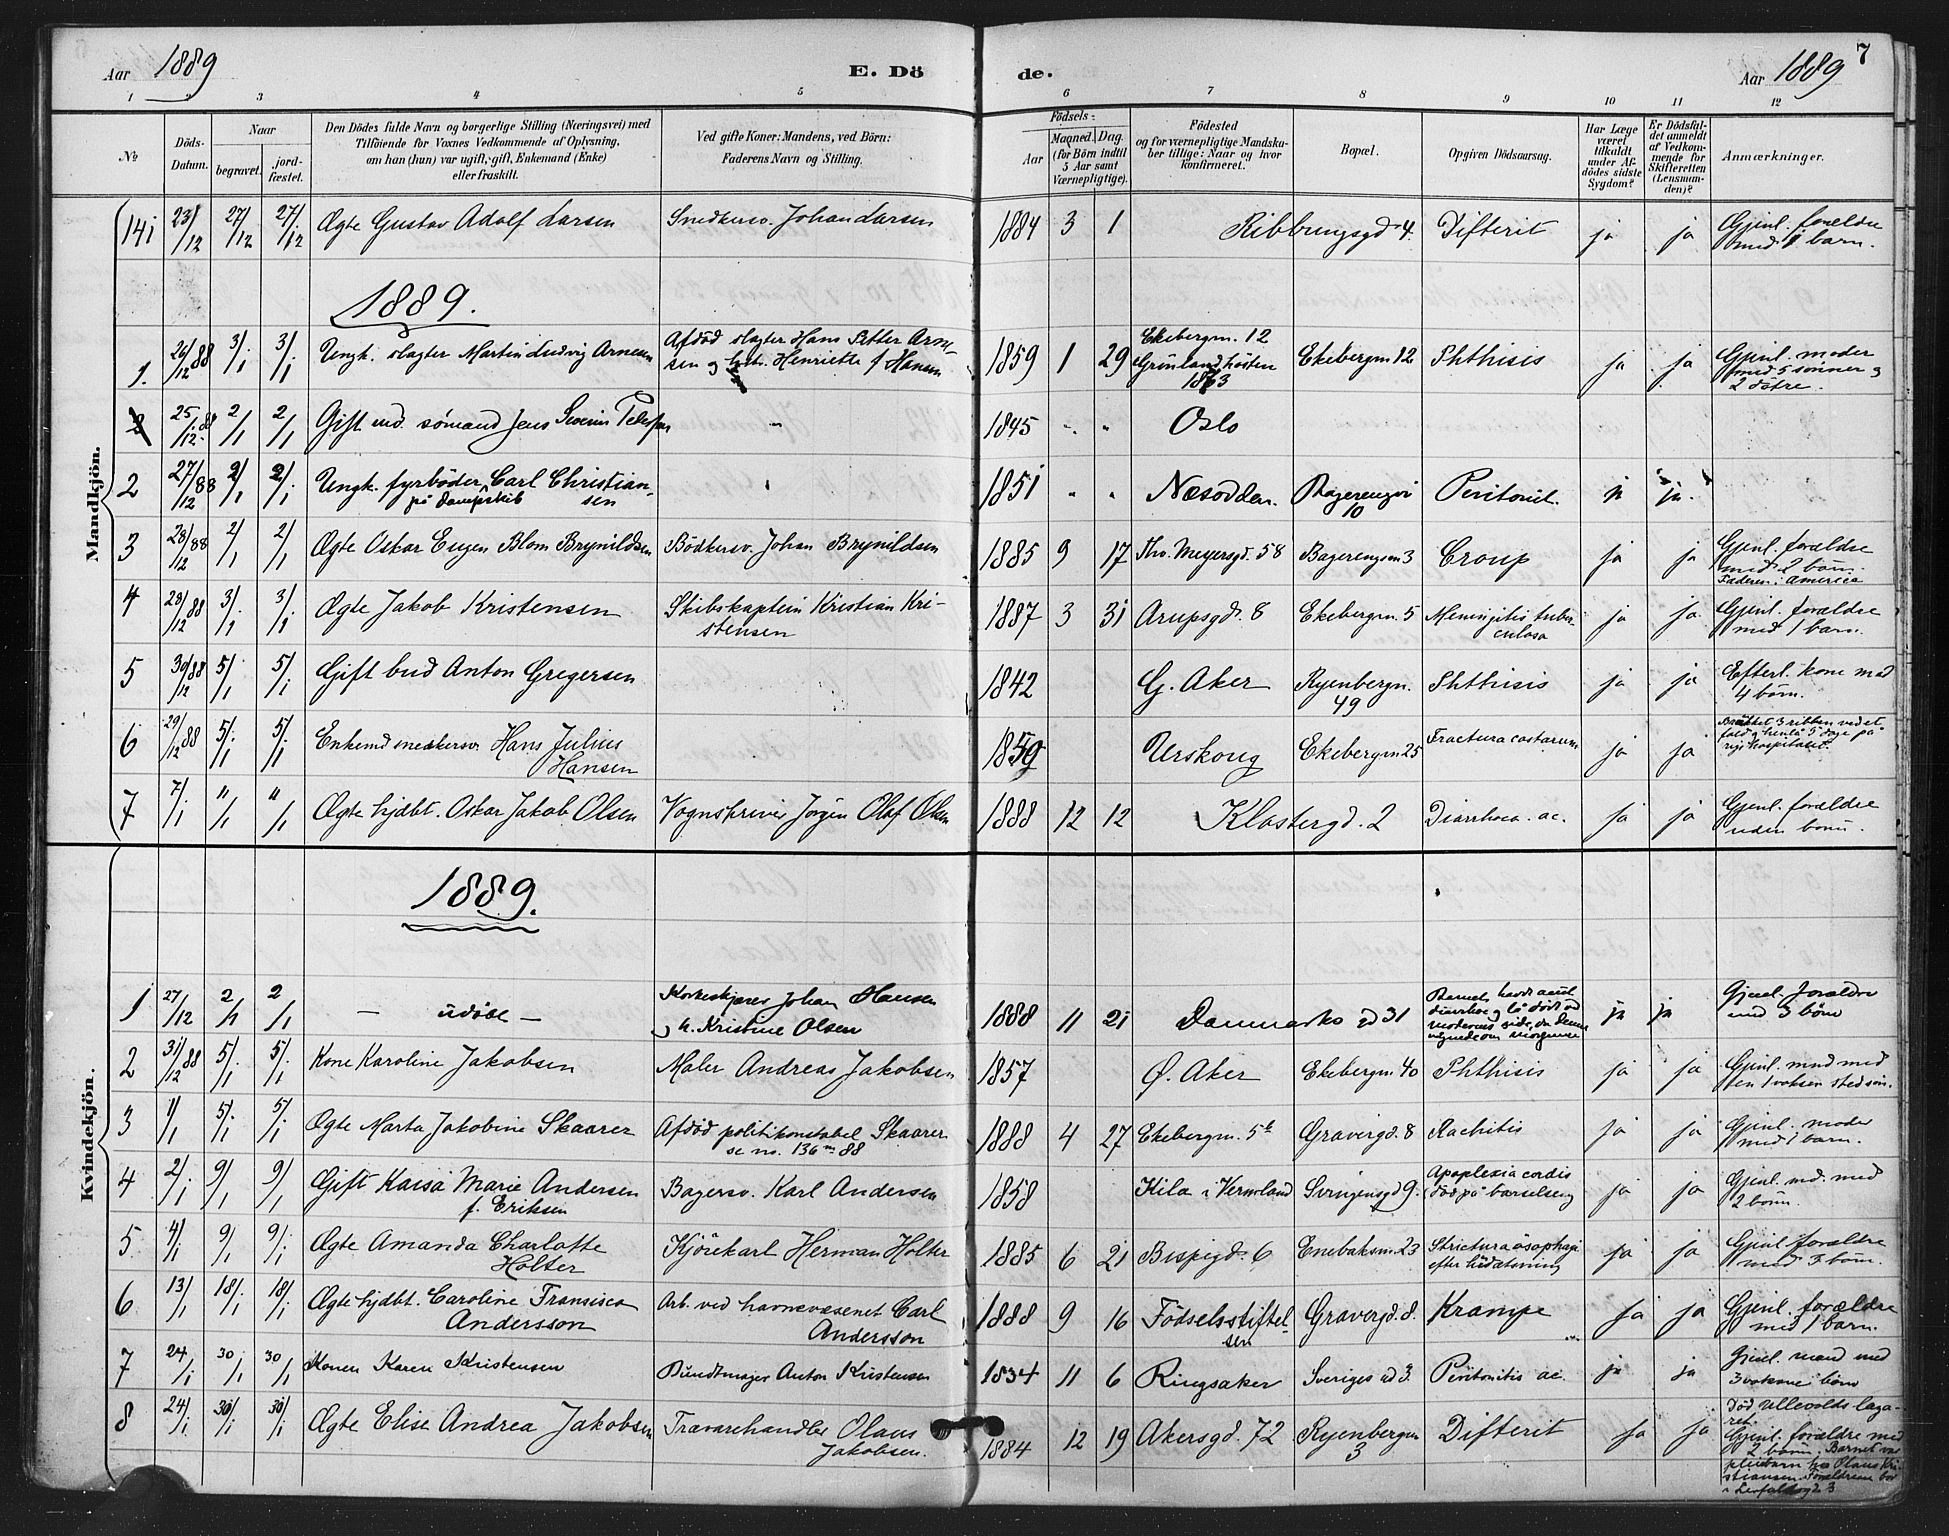 Aar 1889
E. Döde.
Aar 1889
7
1 2 3 4 5 6 7 8 9 10 11 12
No
Döds-Datum.
Naar
begravet.
jord-fæstet.
Den Dödes fulde Navn og borgerlige Stilling (Næringsvei) med
Tilföiende for Voxnes Vedkommende af Oplysning,
om han (hun) var ugift, gift, Enkemand (Enke)
eller fraskilt.
Ved gifte Koner: Mandens, ved Börn:
Faderens Navn og Stilling.
Födsels:
Aar
Maaned. Dag.
(for Börn indtil
5 Aar samt
Værnepligtige).
Födested
og for værnepligtige Mandska-
ber tillige: Naar og hvor
konfirmeret.
Bopæl.
Opgiven Dödsaarsag.
Har Læge
været
tilkaldt
under Af-
dödes sidste
Sygdom?
Er Dödsfal-
det anmeldt
af Vedkom-
mende for
Skifteretten
(Lensman-
den)?
Anmærkninger.
Mandkjön.
141 23/12 27/12 27/12 Ægte Gustav Adolf Larsen Snedkersv. Johan Larsen 1884 3 1 Ribbungsgd 4. Difterit ja ja Gjenl. forældre
med 1 barn.
1889.
1. 26/12 88 3/1 3/1 Ungk. slagter Martin Ludvig Arnesen Afdød slagter Hans Petter Arne-
sen og Henriette f Hansen 1859 1 29 Ekebergm. 12
Grønland høsten
1873 Ekebergm 12 Phthisis ja ja Gjenl. moder
med 5 sønner og
2 døtre.
25/12 88 2/1 2/1 Gift md. sømand Jens Severin Petersen " 1845 " " Oslo
2 27/12 88 2/1 2/1 Ungk. fyrbøder Carl Christian-
på dampskib sen " 1851 " " Næsodden. Bagerengvi
10 Peritonit. ja ja.
3 28/12 88 2/1 2/1 Ægte Oskar Eugen Blom Brynildsen Bødkersv. Johan Brynildsen 1885 9 17 Thv. Meyersgd. 58 Bagerengvn 3 Croup ja ja Gjenl. forældre
med 2 børn.
Faderen i America
4 28/12 88 3/1 3/1 Ægte Jakob Kristensen Skibskaptein Kristian Kri-
stensen 1887 3 31 Arupsgd. 8 Ekebergm. 5 Meningitis tuber-
culosa ja ja Gjenl. forældre
med 1 barn.
5 30/12 88 5/1 5/1 Gift bud Anton Gregersen 1842 G. Aker Ryenbergv.
49 Phthisis ja ja Efterl. kone med
4 børn.
6 29/12 88 5/1 5/1 Enkemd snedkersv. Hans Julius
Hansen 1859 Urskoug Ekebergm 25 Fractura costarum ja ja Brækket 3 ribben ved et
fald og henlå 5 dage på
rigshospitalet.
7 7/1 11/1 11/1 Ægte hjdbt. Oskar Jakob Olsen Vognskriver Jørgen Olaf Olsen 1888 12 12 Klostergd. 2 Diarrhoea. ac. ja ja Gjenl. forældre
uden børn.
Kvindekjön.
1889.
1 27/12 2/1 2/1 — udøbt — Korkeskjærer Johan Hansen
og h. Kristine Olsen 1888 11 21 Danmarks gd 31 Barnet havde havt
diarrhoe og lå død ved
moderens side, da denne
vågnede om morgenen ja ja Gjenl. forældre
med 3 børn
2 31/12 88 5/1 5/1 Kone Karoline Jakobsen Maler Andreas Jakobsen 1857 Ø. Aker Ekebergm. 40 Phthisis ja ja Gjenl. mnd med
en 1 voksen stedsøn.
3 1/1 5/1 5/1 Ægte Marta Jakobine Skaarer Afdød politikonstabel Skaarer
se no. 136 m 88 1888 4 27 Ekebergm. 5 b Gravergd. 8 Rachitis ja ja Gjenl. moder
med 1 barn.
4 2/1 9/1 9/1 Gift Kaisa Marie Andersen
f. Eriksen Bagersv. Karl Andersen 1858 Kila i Vermland Svingensgd 9. Apoplexia cordis
(død på barselseng ja ja Gjenl. md. med
2 børn.
5 4/1 9/1 9/1 Ægte Amanda Charlotte
Holter Kjørekarl Herman Holter 1885 6 21 Bispegd. 6 Enebaksm. 23 Strictura øsophagi
efter ludætsning ja ja Gjenl. forældre
med 3 børn.
6 13/1 18/1 18/1 Ægte hjdbt. Caroline Fransisca
Andersson Arb. ved havnevæsenet Carl
Andersson 1888 9 16 Fødselsstiftel-
sen Gravergd. 8. Krampe ja ja Gjenl. forældre
med 1 barn.
7 24/1 30/1 30/1 Konen Karen Kristensen Bundtmager Anton Kristensen 1834 11 6 Ringsaker Sveriges gd 3. Peritonitis ac. ja ja Gjenl. mand med
3 voksne børn
8 24/1 30/1 30/1 Ægte Elise Andrea Jakobsen Trævarehandler Olaus
Jakobsen. 1884 12 19 Akersgd. 72 Ryenbergvn
3 Difterit ja ja Død Ullevolds laza-
ret.
Gjenl. forældre med
2 børn. Barnet var
pleiebarn hos Olaus Kri-
stiansen. Forældrene bor